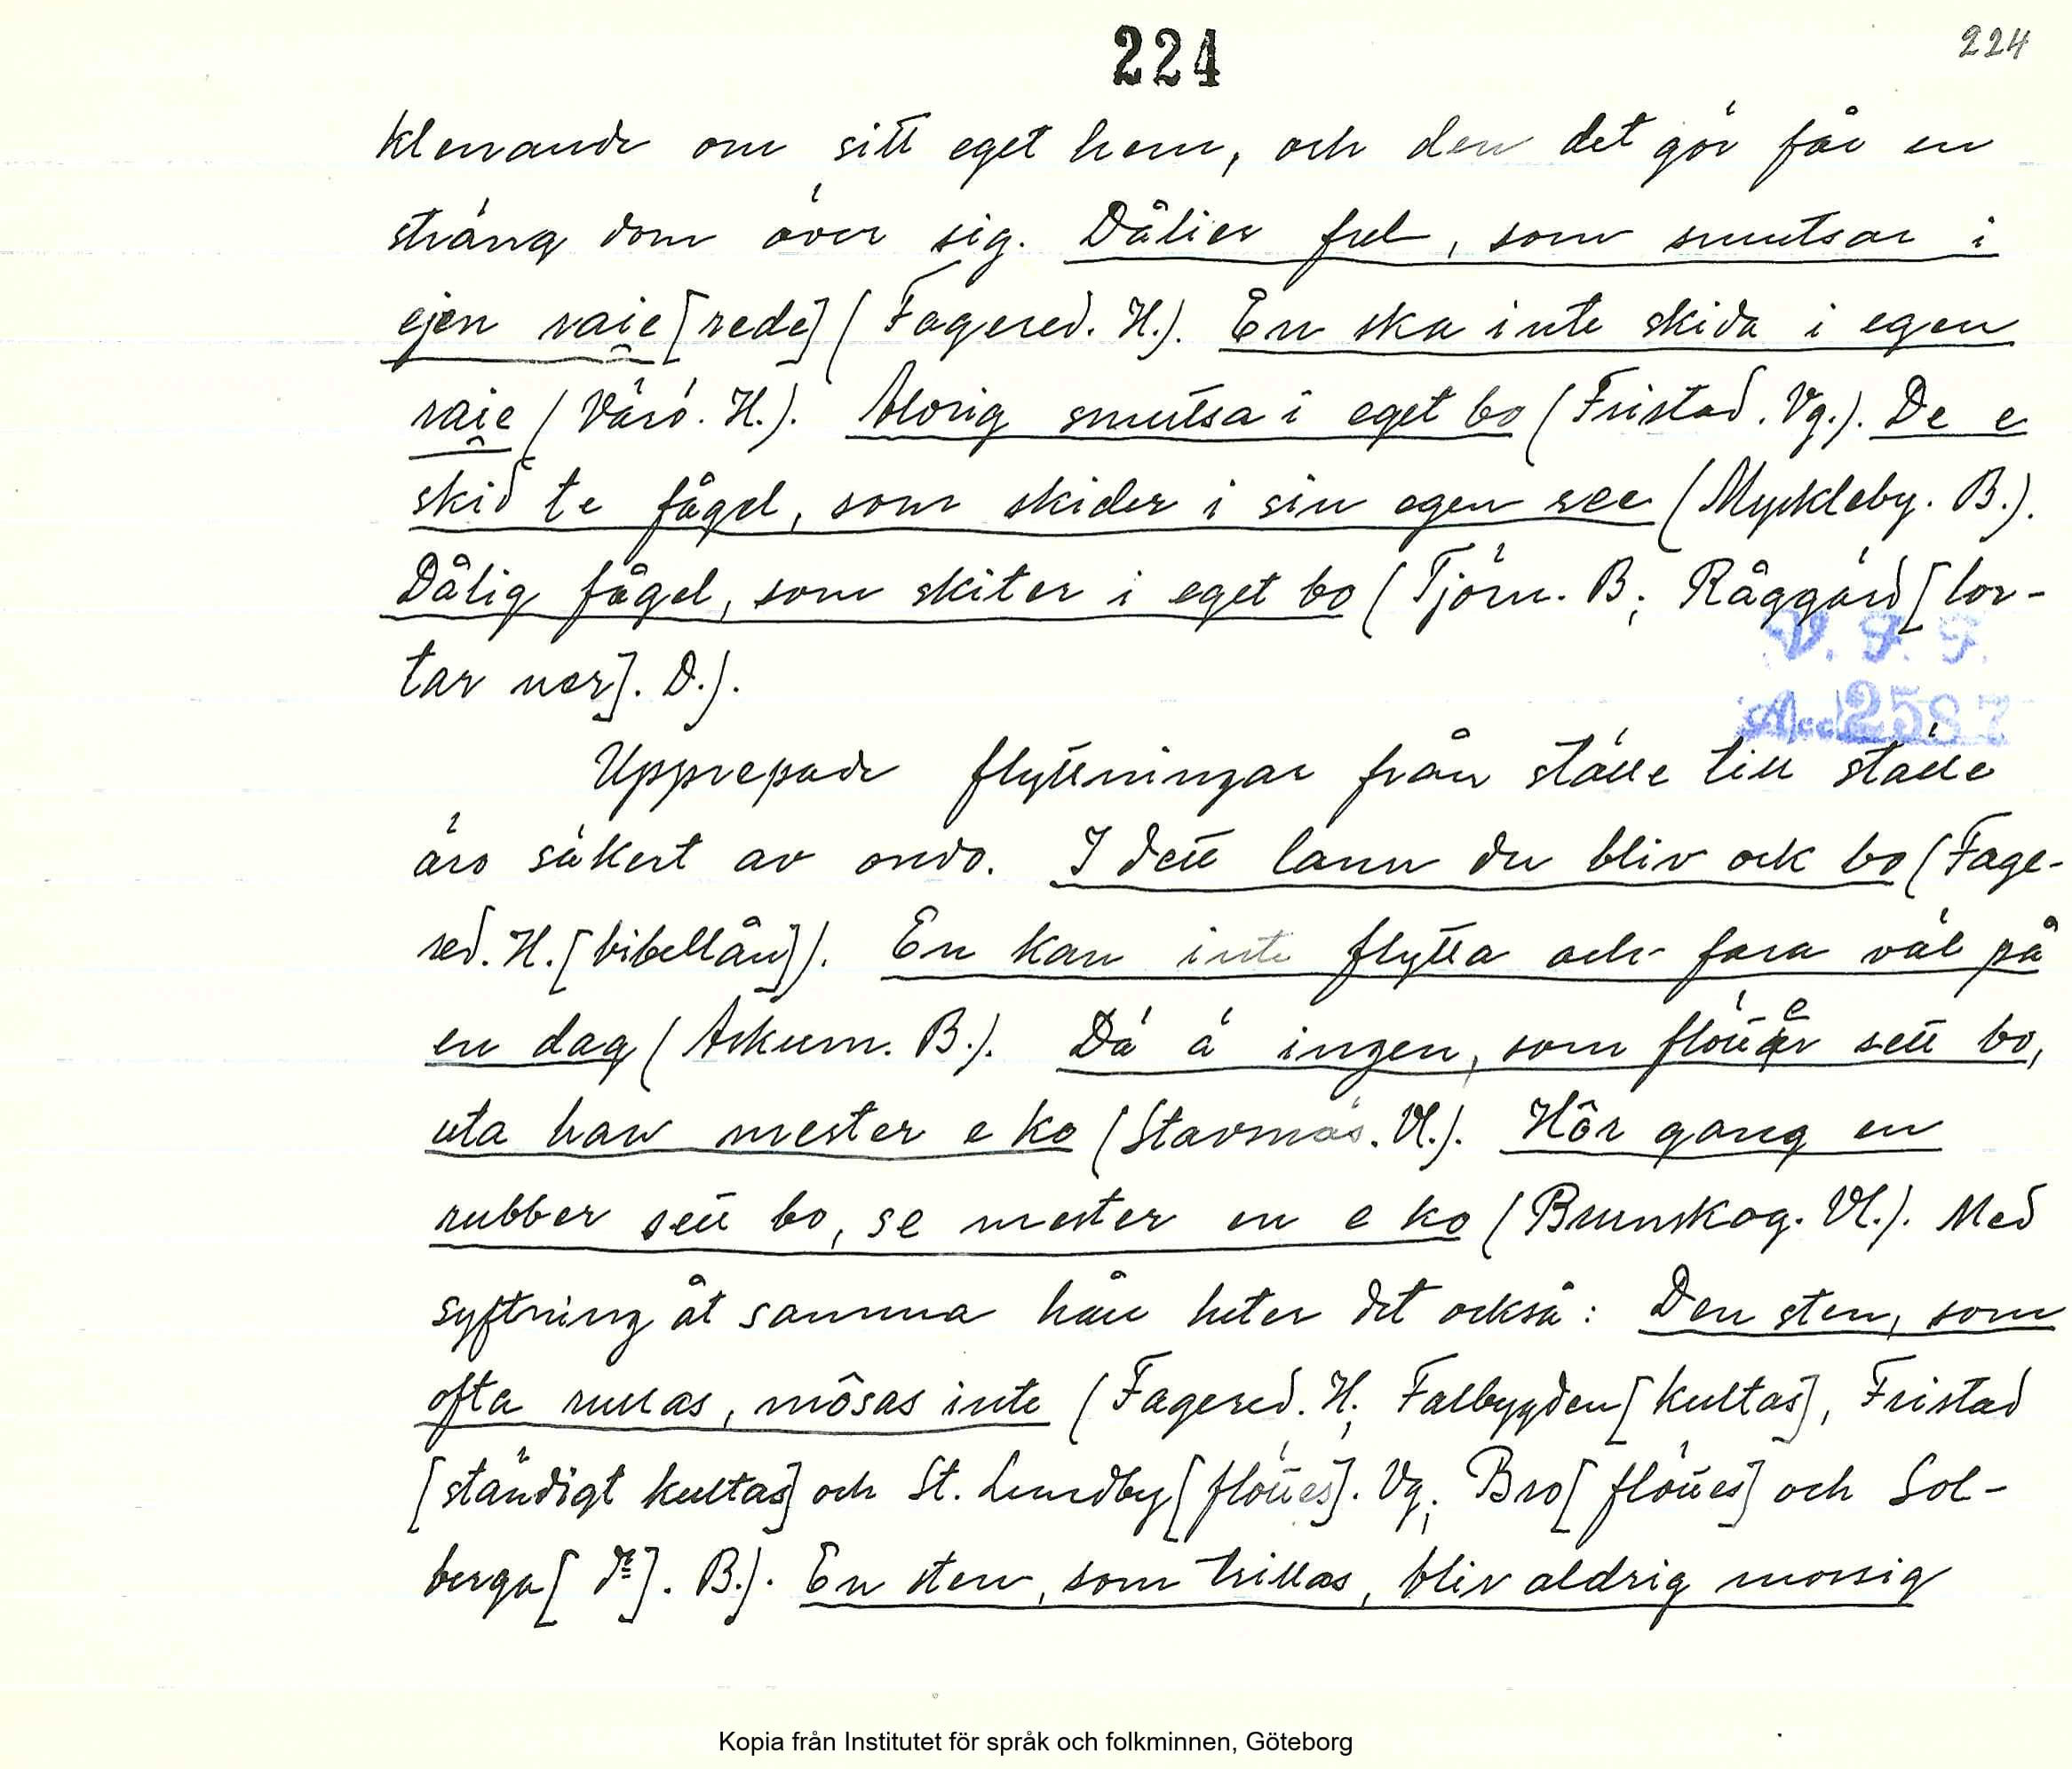 224
224
klenande om sitt eget hem, och den det gör får en
sträng dom över sig. Dålier ful, som smutsar i
ejen raie [rede] (Fagered. H.). Ên ska inte skida i egen
raie (Värö. H.). Aldrig smutsa i eget bo (Fristad. Vg.). De e
skid te fågel, som skider i sin egen ree (Myckleby. B.).
Dålig fågel, som skiter i eget bo (Tjörn. B; Råggärd [lor-
tar ner]. D.).
V. F. F.
Acc 2587
Upprepade flyttningar från ställe till ställe
äro säkert av ondo. I dett lann du bliv ock bo (Fage-
red. H. [bibellån]). En kan inte flytta och fara väl på
en dag (Askum. B.). Dä ä ingen, som flötter sett bo,
uta han mester e ko (Stavnäs. Vl.). Hôr gang en
rubber sett bo, se mester en e ko (Brunskog. Vl.). Med
syftning åt samma håll heter det också: Den sten, som
ofta rullas, môsas inte (Fagered. H; Falbygden [kultas], Fristad
[ständigt kultas] och St. Lundby [flöttes]. Vg; Bro [flöttes] och Sol-
berga [d:o]. B.). En sten, som trillas, bliv aldrig mossig
Kopia från Institutet för språk och folkminnen, Göteborg